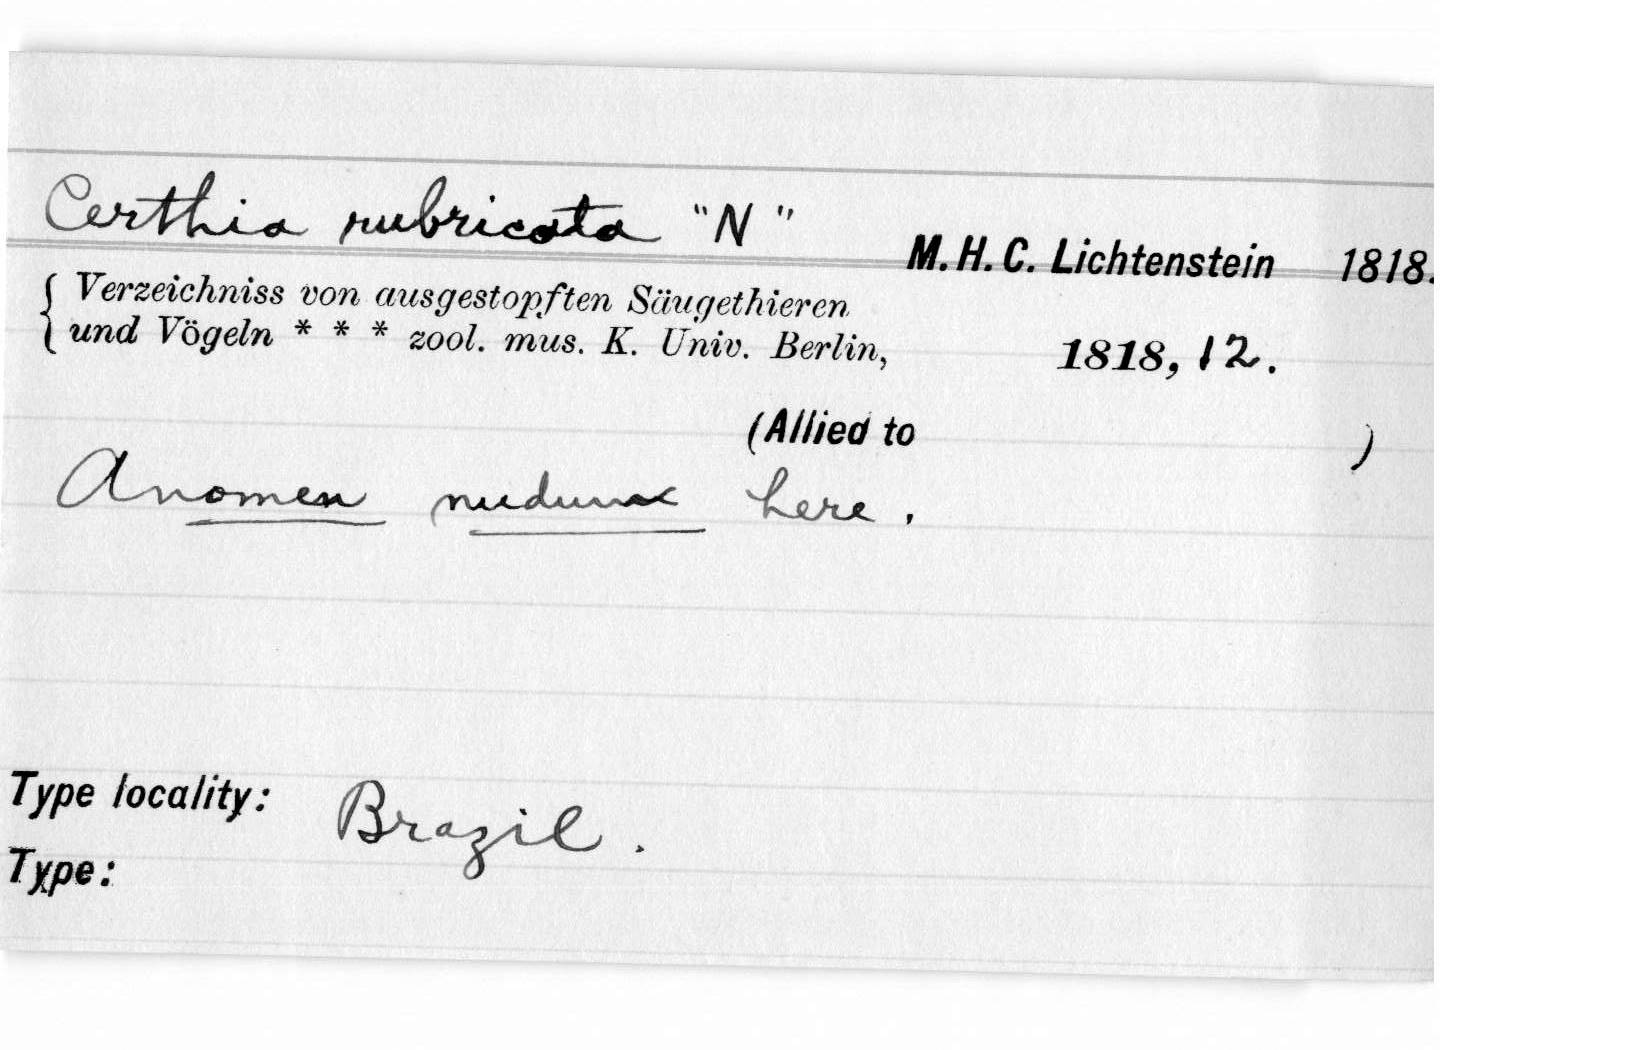 Certhia rubricata "N" M. H. C. Lichtenstein 1818.
{ Verzeichniss von ausgestopften Säugethieren
und Vögeln * * * zool. mus. K. Univ. Berlin, 1818, 12.
(Allied to )
A nomen nudum here.
Type locality: Brazil.
Type: